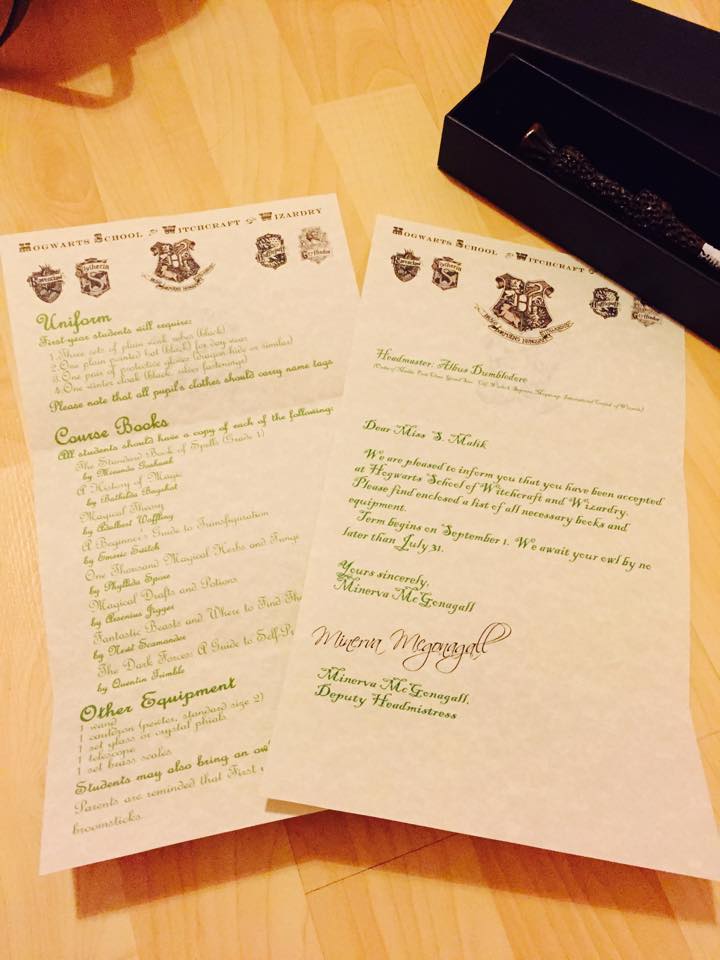 HOGWARTS SCHOOL of WITCHCRAFT & WIZARDRY
Ravenclaw
Slytherin
Gryffindor
Uniform
First-year students will require:
1. Three sets of plain work robes (black)
2. One plain pointed hat (black) for day wear
3. One pair of protective gloves (dragon hide or similar)
4. One winter cloak (black, silver fastenings)
Please note that all pupil's clothes should carry name tags
Course Books
All students should have a copy of each of the following:
The Standard Book of Spells (Grade 1)
by Miranda Goshawk
A History of Magic
by Bathilda Bagshot
Magical Theory
by Adalbert Waffling
A Beginner's Guide to Transfiguration
by Emeric Switch
One Thousand Magical Herbs and Fungi
by Phyllida Spore
Magical Drafts and Potions
by Arsenius Jigger
Fantastic Beasts and Where to Find
by Newt Scamander
The Dark Forces: A Guide to
by Quentin Trimble
Other Equipment
1 wand
1 cauldron (pewter, standard size 2)
1 set glass or crystal phials
1 telescope
1 set brass scales
Students may also bring an
Parents are reminded that First
broomsticks.
HOGWARTS SCHOOL of WITCHCRAFT
Ravenclaw
Slytherin
Headmaster: Albus Dumbledore
Dear Miss S. Malik
We are pleased to inform you that you have been accepted
at Hogwarts School of Witchcraft and Wizardry.
Please find enclosed a list of all necessary books and
equipment.
Term begins on September 1. We await your owl by no
later than July 31.
Yours sincerely,
Minerva McGonagall
Minerva Mcgonagall
Minerva McGonagall,
Deputy Headmistress